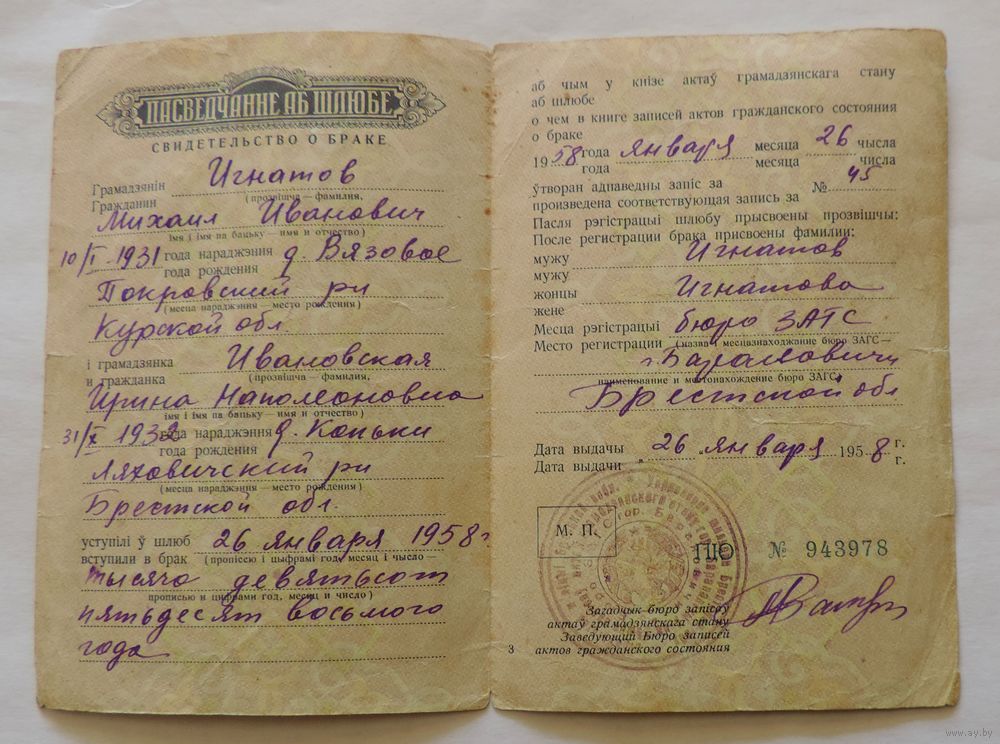 ПАСВЕДЧАННЕ АБ ШЛЮБЕ
СВИДЕТЕЛЬСТВО О БРАКЕ
Грамадзянін Игнатов
Гражданин (прозвішча — фамилия,
Михаил Иванович
імя і імя па бацьку — имя и отчество)
10/I-1931 года нараджэння д. Вязовое
года рождения
Покровский р-н
(месца нараджэння — место рождения)
Курской обл
і грамадзянка Ивановская
и гражданка (прозвішча — фамилия,
Ирина Наполеоновна
імя і імя па бацьку — имя и отчество)
31/X 1932 года нараджэння д. Коньки
года рождения
Ляховичский р-н
(месца нараджэння — место рождения)
Брестской обл.
уступілі ў шлюб 26 января 1958 г
вступили в брак (пропіссю і цыфрамі год, месяц і число —
тысяча девятьсот
прописью и цифрами год, месяц и число)
пятьдесят восьмого
года
аб чым у кнізе актаў грамадзянскага стану
аб шлюбе
о чем в книге записей актов гражданского состояния
о браке
1958 года января месяца 26 чысла
года месяца числа
ўтворан адпаведны запіс за № 45
произведена соответствующая запись за
Пасля рэгістрацыі шлюбу прысвоены прозвішчы:
После регистрации брака присвоены фамилии:
мужу Игнатов
мужу
жонцы Игнатова
жене
Месца рэгістрацыі бюро ЗАГС
Место регистрации (назва і месцазнаходжанне бюро ЗАГС —
г. Барановичи
наименование и местонахождение бюро ЗАГС)
Брестской обл
Дата выдачы "26" января 1958 г.
Дата выдачи " г.
М. П.
ГЦО № 943978
Загадчык бюро запісаў
актаў грамадзянскага стану
Заведующий Бюро записей
актов гражданского состояния
3
www.ay.by